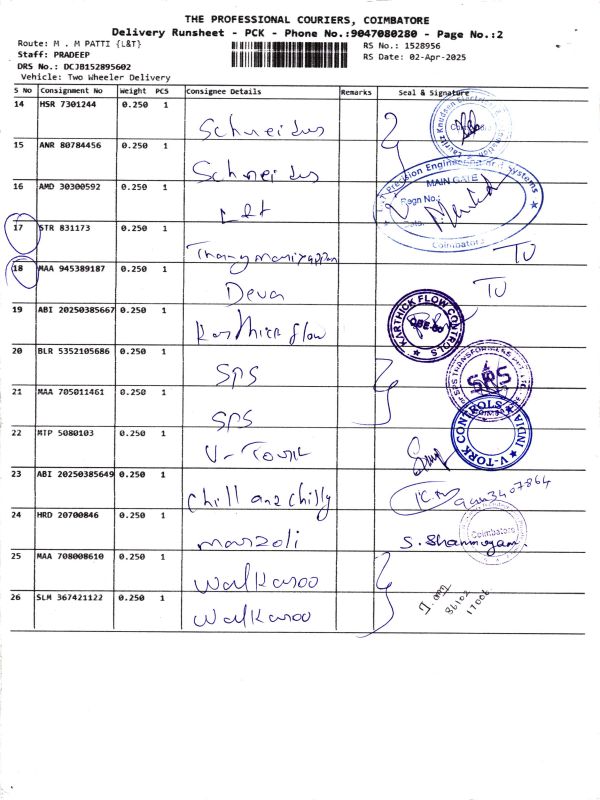 THE PROFESSIONAL COURIERS, COIMBATORE
Delivery Runsheet - PCK - Phone No.:9047080280 - Page No.:2
Route: M . M PATTI {L&T}
RS No.: 1528956
Staff: PRADEEP
RS Date: 02-Apr-2025
DRS No.: DCJB152895602
Vehicle: Two Wheeler Delivery
S No Consignment No Weight PCS Consignee Details Remarks Seal & Signature
14 HSR 7301244 0.250 1 Schneidus
15 ANR 80784456 0.250 1 Schneidus
16 AMD 30300592 0.250 1 L&t
MAIN GATE
Coimbatore
17 STR 831173 0.250 1
18 MAA 945389187 0.250 1 Deva
19 ABI 20250385667 0.250 1 Karthick flow
KARTHICK FLOW CONTROLS
20 BLR 5352105686 0.250 1 SPS
SPS
21 MAA 705011461 0.250 1 SPS
22 MTP 5080103 0.250 1 V-Tourk
V-TORK CONTROLS INDIA
23 ABI 20250385649 0.250 1 Chill anzchilly
24 HRD 20700846 0.250 1 marzoli
Coimbatore
S. Shanmugam
25 MAA 708008610 0.250 1 Walkaroo
26 SLM 367421122 0.250 1 Walkaroo